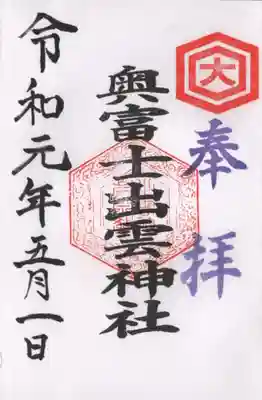 大
奉拝
奥富士出雲神社
令和元年五月一日